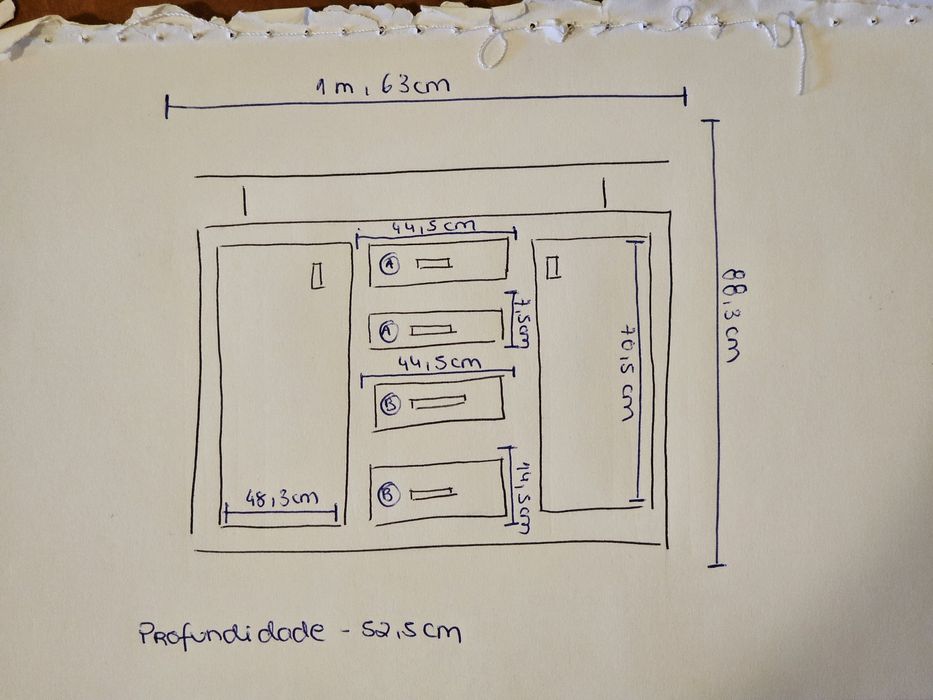 1m, 63cm
88,3cm
44,5cm
A
A
7,5cm
44,5cm
70,5cm
B
B
14,5cm
48,3cm
Profundidade - 52,5cm